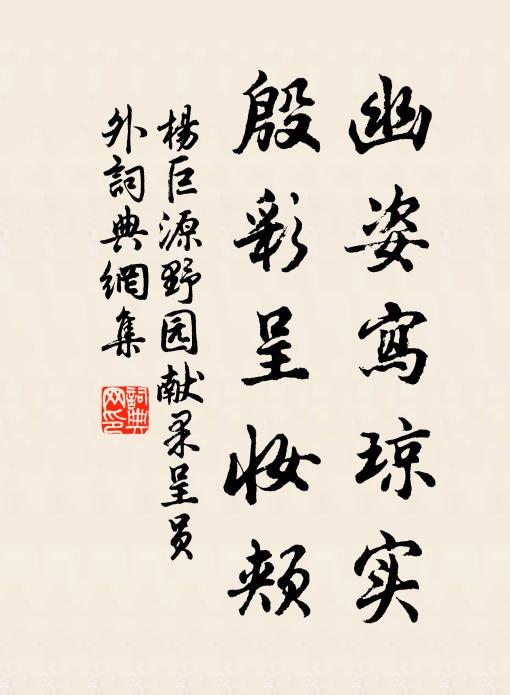 幽姿寫琼实
殷彩呈妆颊
楊巨源野园献果呈员
外詞典網集
詞典
网印